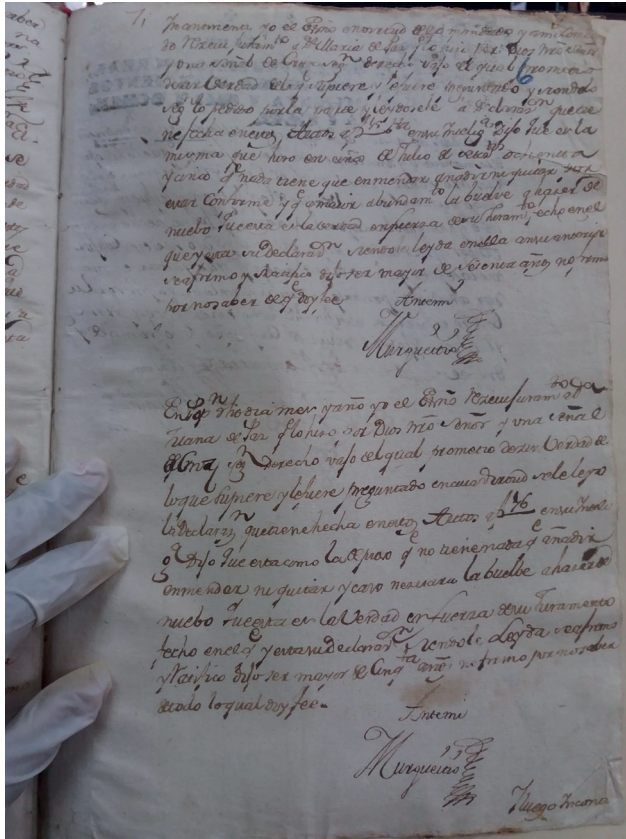 7,
6
Incontinenti yo el Essno en virtud de lo mandado
do Rezevi Juram^to a D^a Maria de Paz q lo hizo por Dios Nro Señor
y una señal de Cruz seg^n derecho vajo el qual prometio
dezir Verdad de lo q supiere y le fuere preguntado y siendole
leydosele la declaraz^on que tiene
fecha en estos Autos Dijo que es la
misma que hizo en de Julio de
y cinco q nada tiene que enmendar q añadir ni quitar
estar Conforme y q a mayor abundam^to la buelve q hazer de
nuebo que esta es la verdad en fuerza de su Juram^to fecho en el
que y esta su Declaraz^on siendole leyda en ella
se afirmo y ratifico dijo ser mayor de sesenta años no firmo
por no saber de q doy fee
Antemi
Murgueitio
En d^ho dia mes y año yo el Essno Rezevi Juram^to de
Juana de Paz q lo hizo por Dios Nro Señor y una señal
de Cruz seg^n derecho vajo del qual prometio dezir Verdad de
lo que supiere y le fuere preguntado en cuia virtud se le leyo
la Declaraz^n que tiene hecha en estos Autos f 76
Dijo que esta como la espreso q no tiene nada q añadir
enmendar ni quitar y caso nezesario la buelbe a hazer de
nuebo q esta es la Verdad en fuerza de su Juramento
fecho en el q y esta su Declaraz^n siendole Leyda se afirmo
y ratifico dijo ser mayor de Cinq^ta años no firmo por no saber
de todo lo qual doy fee
Antemi
Murgueitio
Fuego